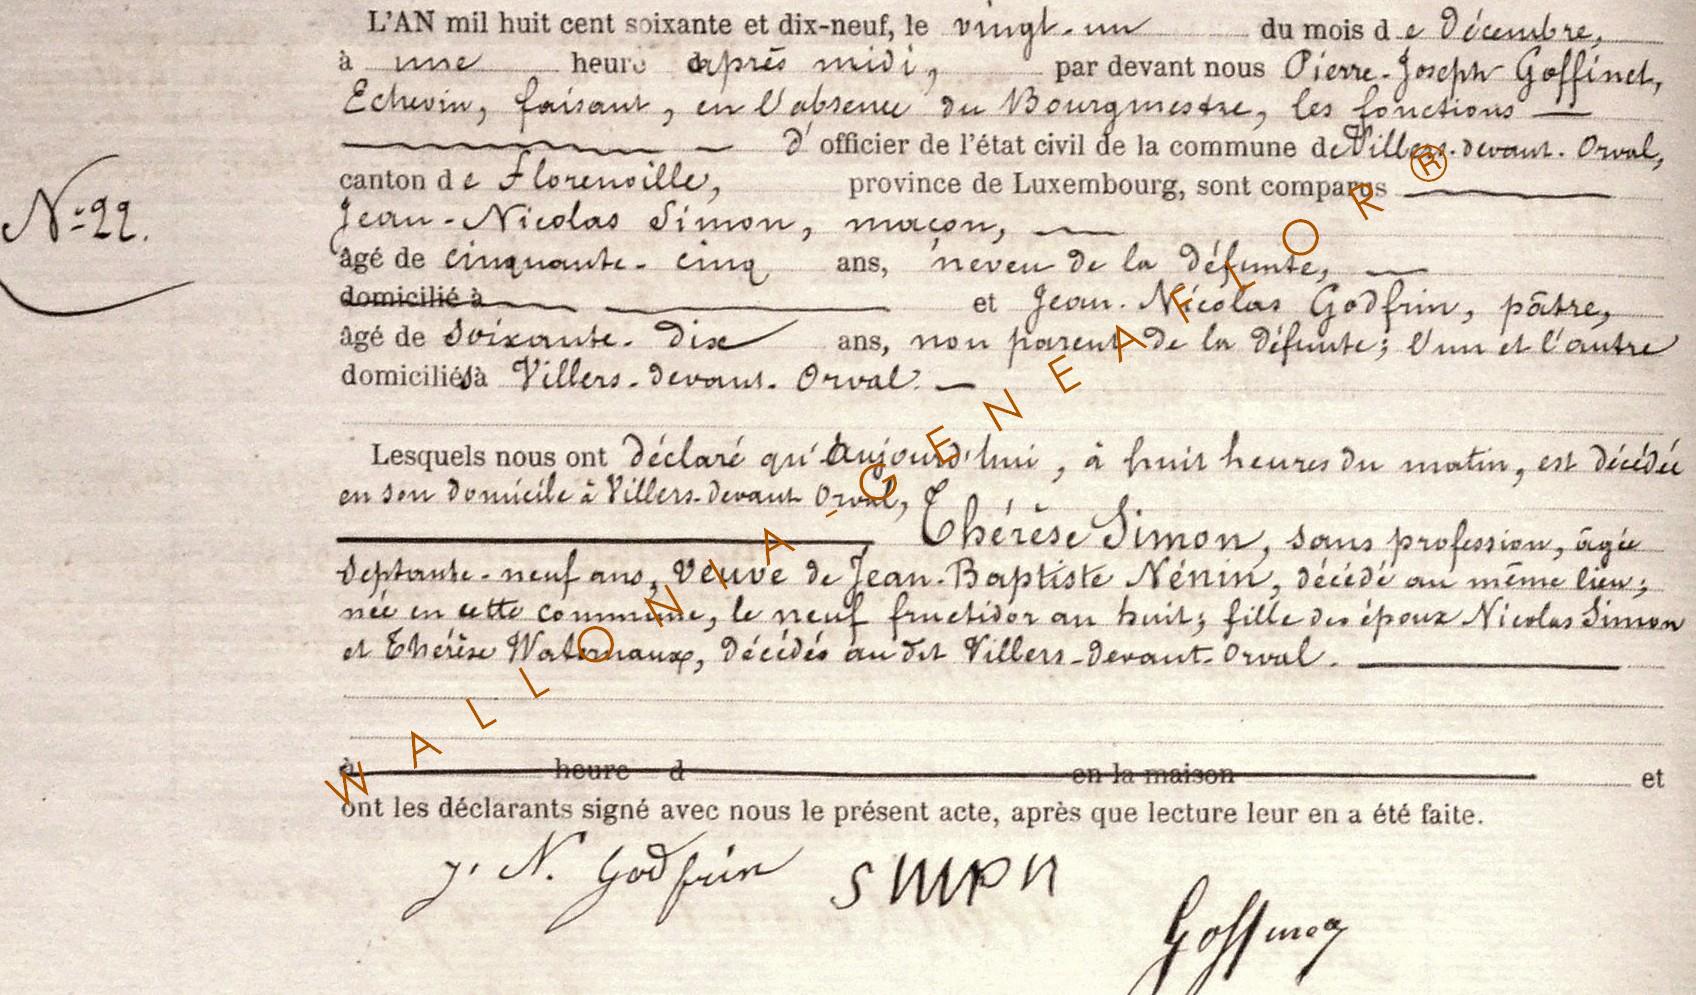 L'AN mil huit cent soixante et dix-neuf, le vingt-un du mois de Décembre,
à une heure après midi, par devant nous Pierre-Joseph Goffinet,
Echevin, faisant, en l'absence du Bourgmestre, les fonctions
d'officier de l'état civil de la commune de Villers-devant-Orval,
canton de Florenville, province de Luxembourg, sont comparus
N° 22.
Jean-Nicolas Simon, maçon,
âgé de cinquante-cinq ans, neveu de la défunte,
domicilié à et Jean-Nicolas Godfrin, pâtre,
âgé de soixante-dix ans, non parent de la défunte; l'un et l'autre
domiciliés à Villers-devant-Orval.
Lesquels nous ont déclaré qu'aujourd'hui, à huit heures du matin, est décédée
en son domicile à Villers-devant Orval,
Thérèse Simon, sans profession, âgée
septante-neuf ans, veuve de Jean-Baptiste Nénin, décédé au même lieu;
née en cette commune, le neuf fructidor an huit; fille des époux Nicolas Simon
et Thérèse Waternaux, décédés au dit Villers-devant-Orval.
à heure d en la maison et
ont les déclarants signé avec nous le présent acte, après que lecture leur en a été faite.
J. N. Godfrin Simon
Goffinet
WALLONIA-GENEAFLOR®